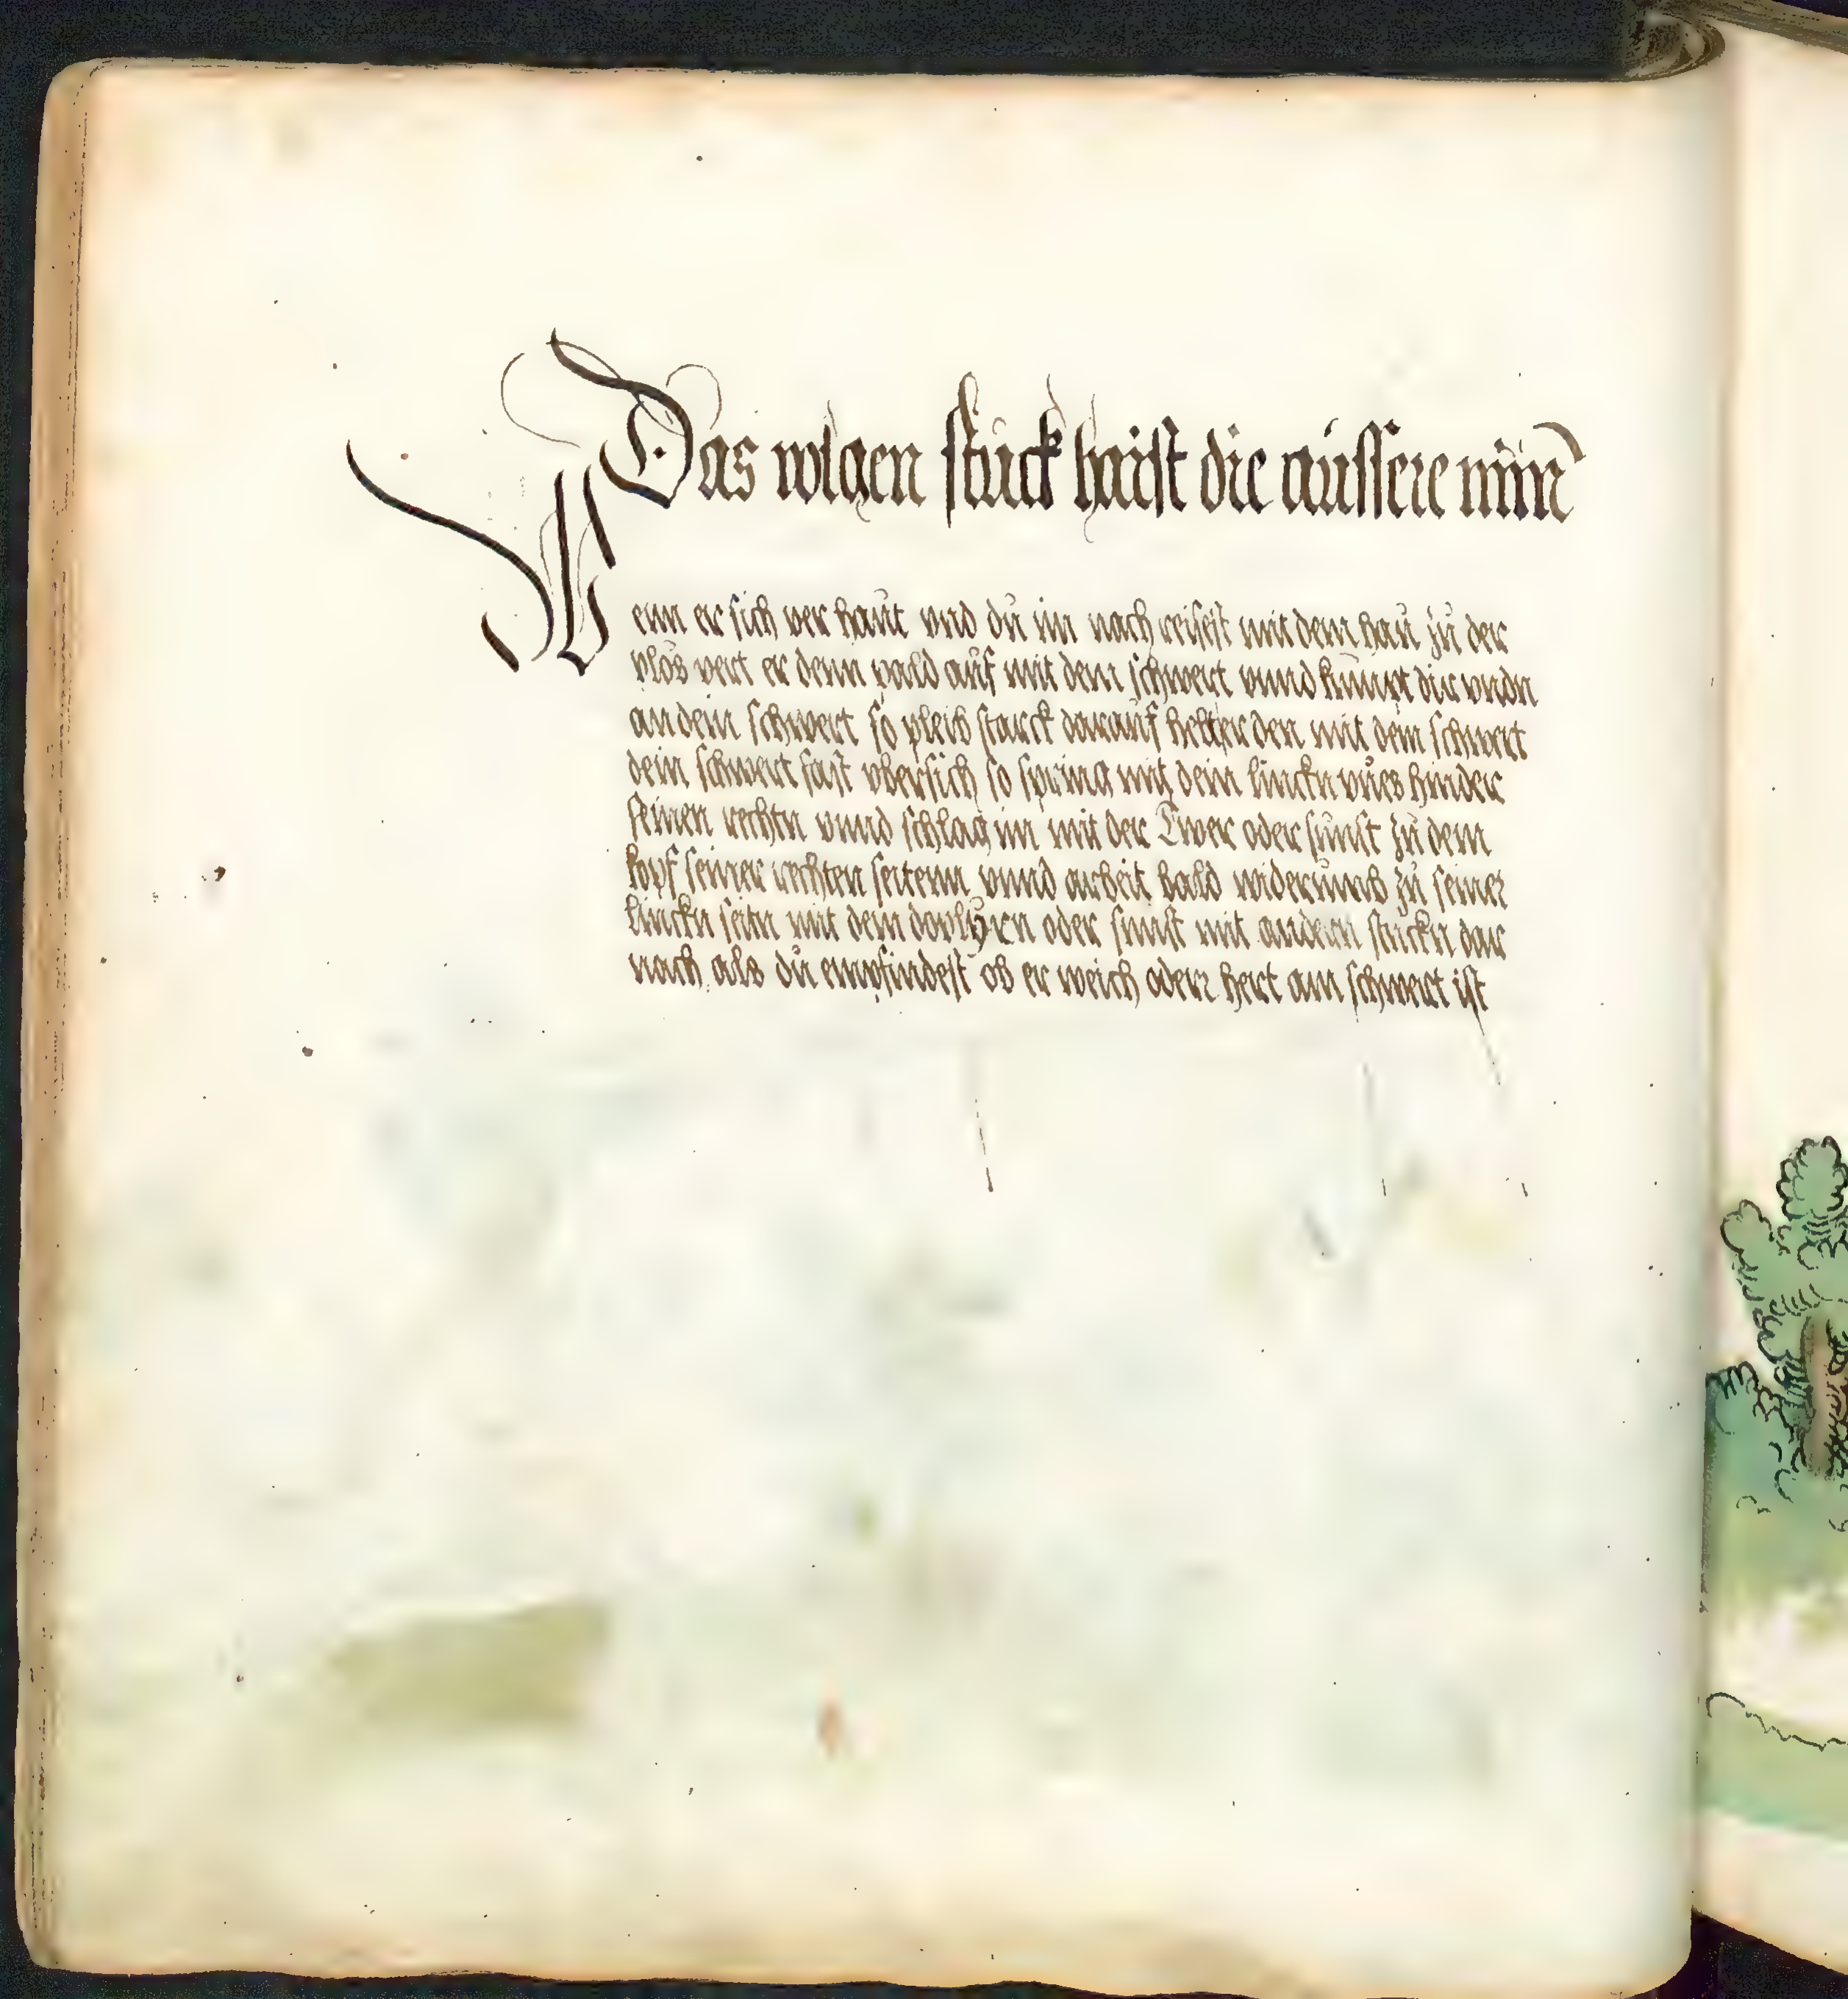 Das volgen stuck haist die aussere min̄
Wenn er sich ver haut vnd du im nach reisest mit dem hau zu der
plos vert er denn pald auf mit dem schwert vnnd kumpt dir vndn
an dein schwert so pleib starck darauf helt er den mit dem schwert
dein schwert fast vbersich so spring mit dein linckn vues hinder
seinen rechtn vnnd schlag im mit der Twer oder sunst zu dem
kopf seiner rechten seitenn vnnd arbeit bald widerumb zu seiner
linckn seitn mit dem doplirn oder sunst mit andern stuckn dar
nach als du empfindest ob er weich oder hert am schwert ist